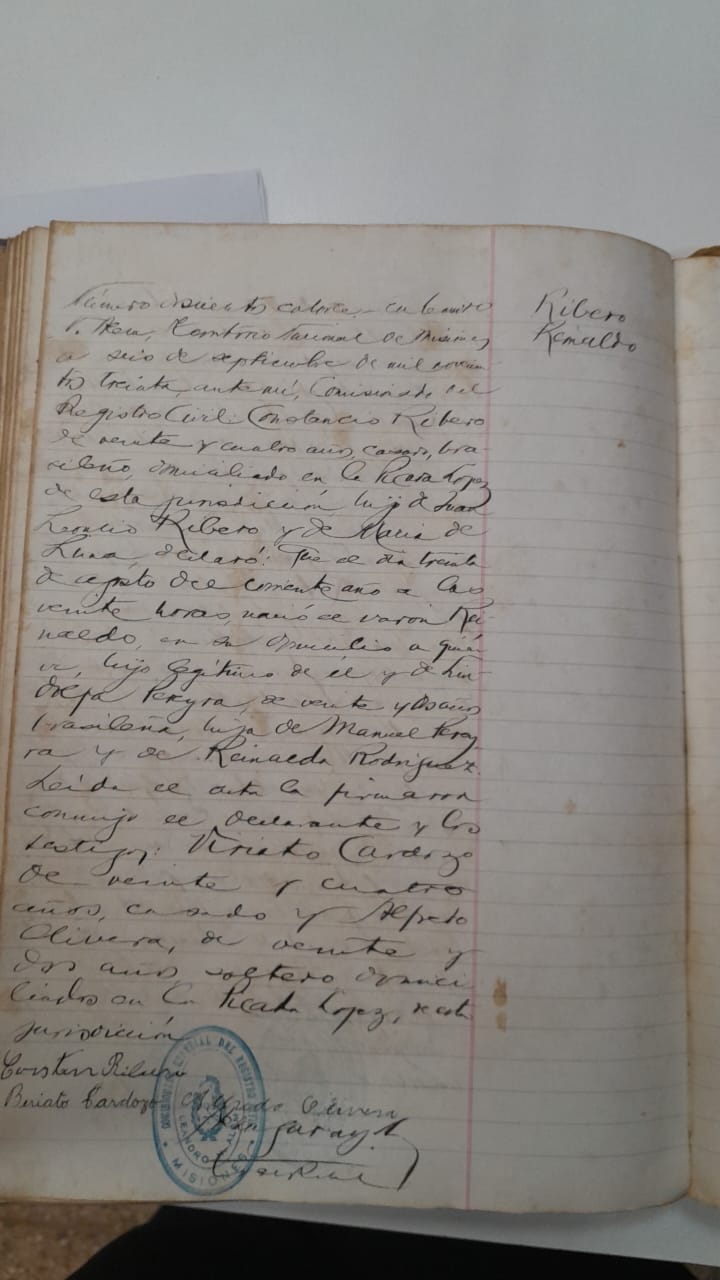 Número doscientos catorce – en Leandro
N. Alem, Territorio Nacional de Misiones
a seis de septiembre de mil novecien-
tos treinta, ante mi, Comisionado del
Registro Civil: Constancio Ribero
de veinte y cuatro años, casado, bra-
sileño, domiciliado en la Picada Lopez
de esta jurisdicción, hijo de Juan
Leoncio Ribero y de Maria de
Luna, declaró: Que el dia treinta
de agosto del corriente año a las
veinte horas, nació el varon Rei-
naldo, en su domicilio a quien
vi, hijo legítimo de él y de Lin-
dolfa Pereyra, de veinte y dos años
brasileña, hija de Manuel Perey-
ra y de Reinalda Rodriguez.
Leída el acta la firmaron
conmigo el declarante y los
testigos: Viriato Cardozo
de veinte y cuatro
años, casado y Alfredo
Olivera, de veinte y
dos años soltero domici
liados en la Picada Lopez, de esta
jurisdicción
Ribero
Reinaldo
Beriato Cardozo Alfredo Olivera
DEL REGISTRO
LEANDRO N. ALEM
MISIONES